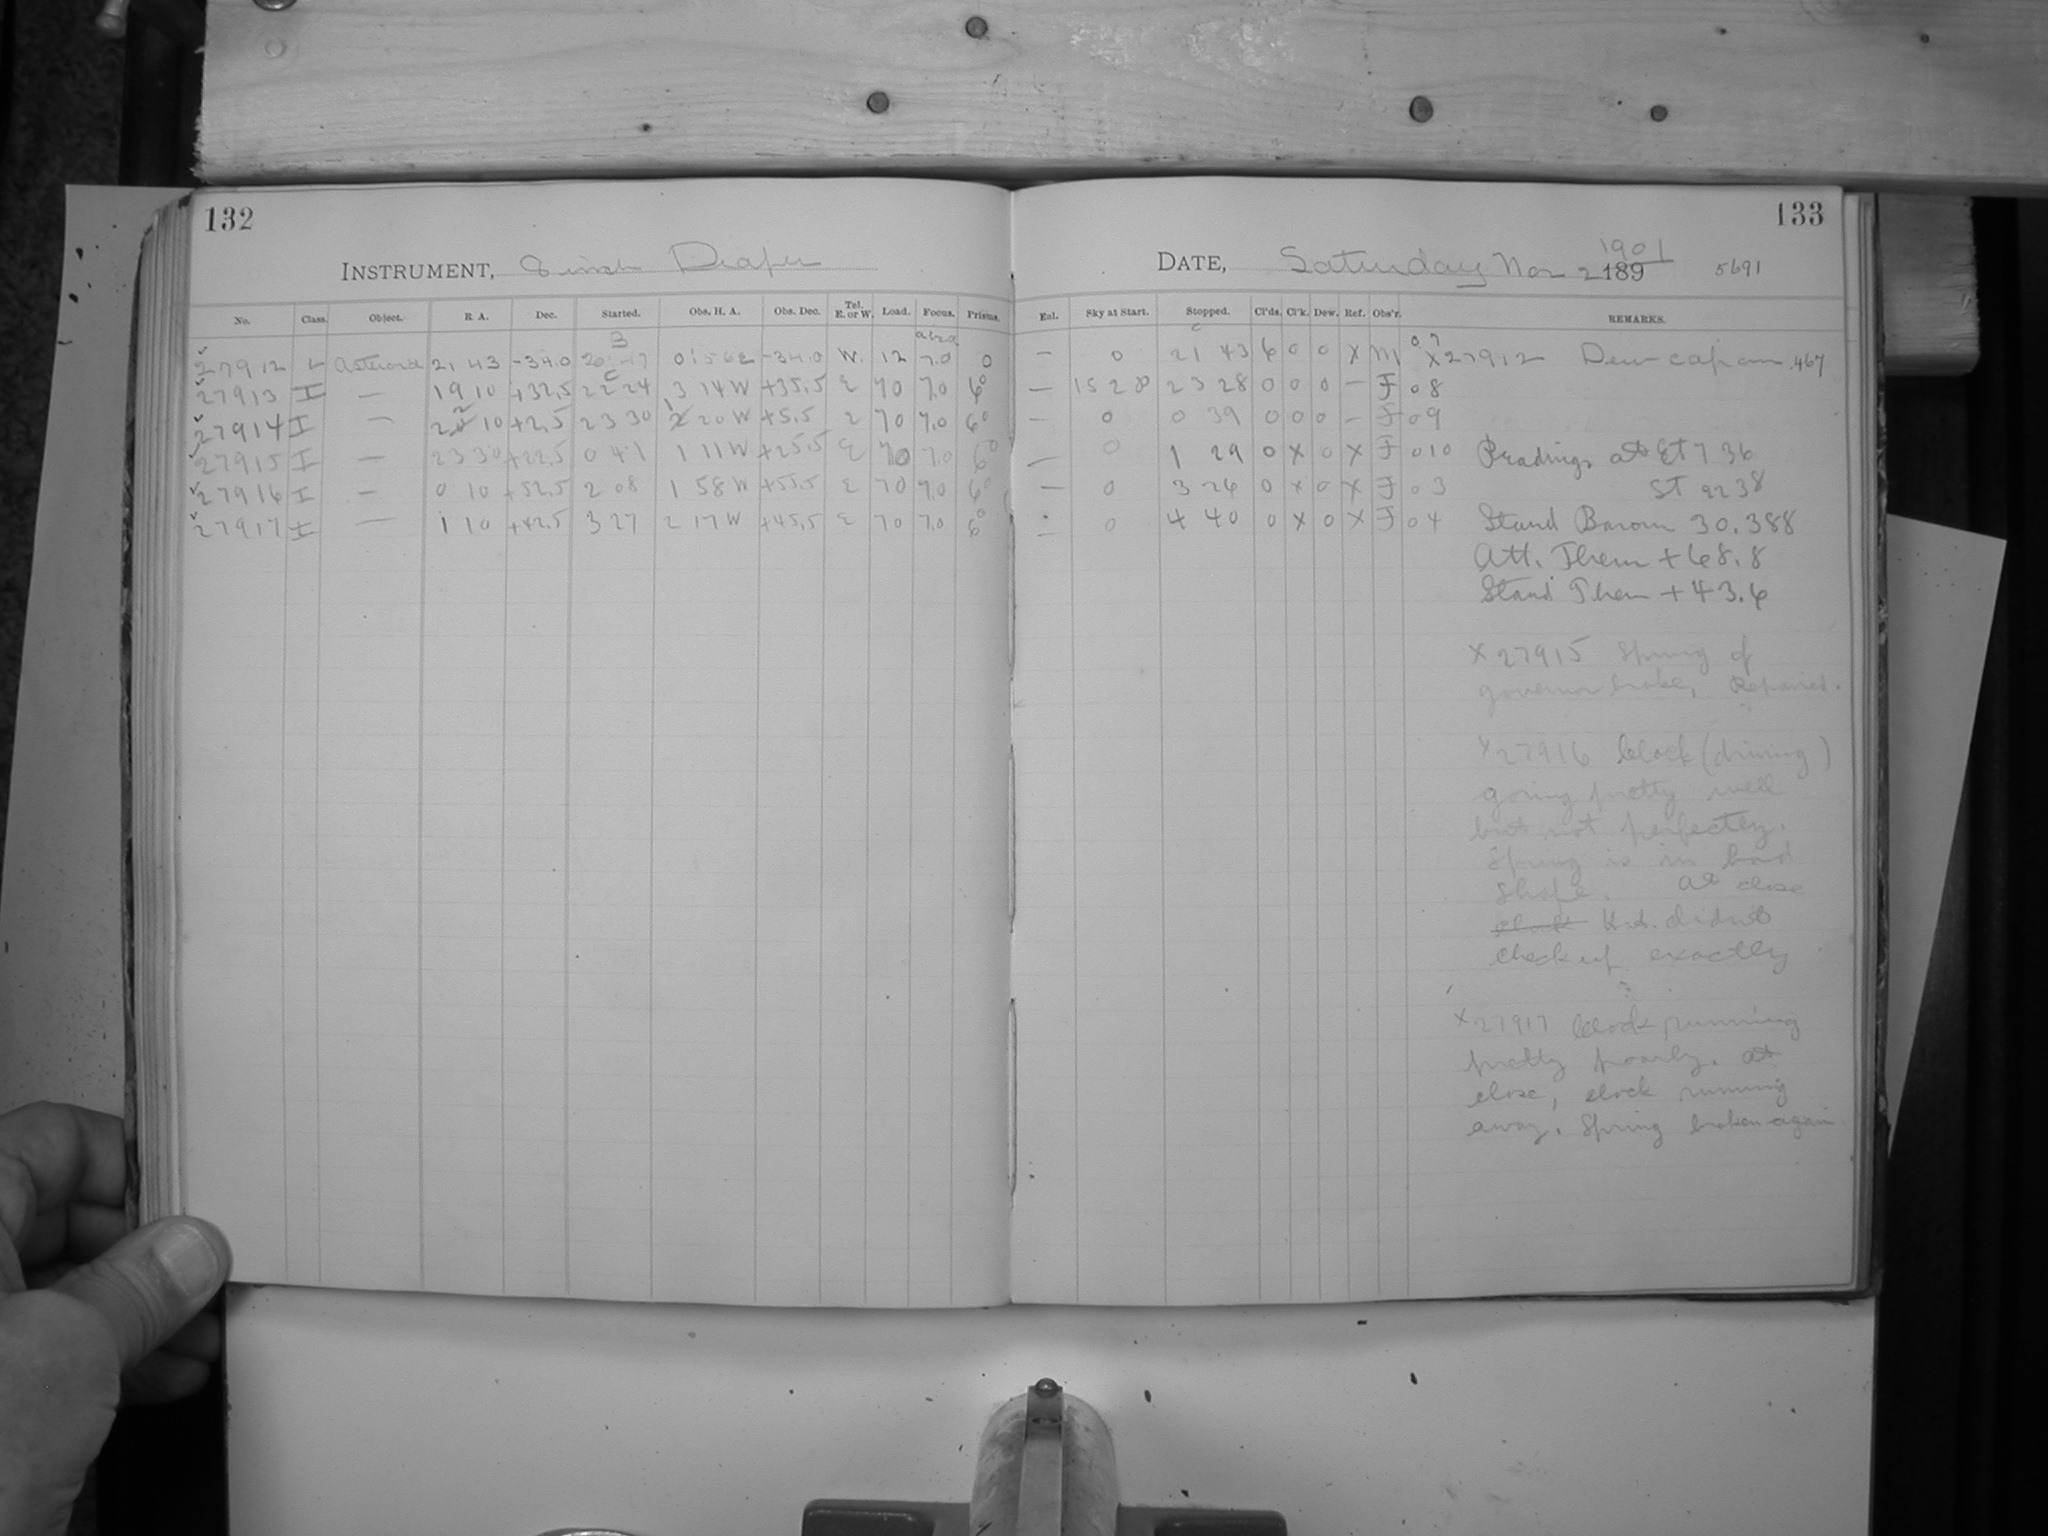 132
133
INSTRUMENT, 8 inch Draper
DATE, Saturday Nov 2 189 1901 5691
No. Class. Object. R. A. Dec. Started. Obs. H. A. Obs. Dec. Tel. E. or W. Load. Focus. Prisms. Enl. Sky at Start. Stopped. Cl'ds. Cl'k. Dew. Ref. Obs'r. REMARKS.
27912 L Asteroid 21 43 -34.0 20 47 0 56 E -34.0 W. 12 7.0 0 — 0 21 43 6 0 0 X M 07 X27912 Dew cap on .467
27913 I — 19 10 +32.5 22 24 3 14 W +35.5 E 70 7.0 6° — 15 28 23 28 0 0 0 — F 08
27914 I — 22 10 +2.5 23 30 1 20 W +5.5 E 70 7.0 6° — 0 0 39 0 0 0 — F 09
27915 I — 23 30 +22.5 0 41 1 11 W +25.5 E 70 7.0 6° — 0 1 29 0 X 0 X F 010 Readings at ET 7 36
27916 I — 0 10 +52.5 2 08 1 58 W +55.5 E 70 7.0 6° — 0 3 26 0 X 0 X F 03 ST 22 38
27917 I — 1 10 +42.5 3 27 2 17 W +45.5 E 70 7.0 6° — 0 4 40 0 X 0 X F 04 Stand Barom 30.388
Att. Therm +68.8
Stand Ther +43.6
X 27915 Spring of
governor broke, Repaired.
X 27916 clock (driving)
going pretty well
but not perfectly.
Spring is in bad
shape. At close
clock H.A. didnt
check up exactly
X 27917 clock running
pretty poorly. at
close, clock running
away. Spring broken again